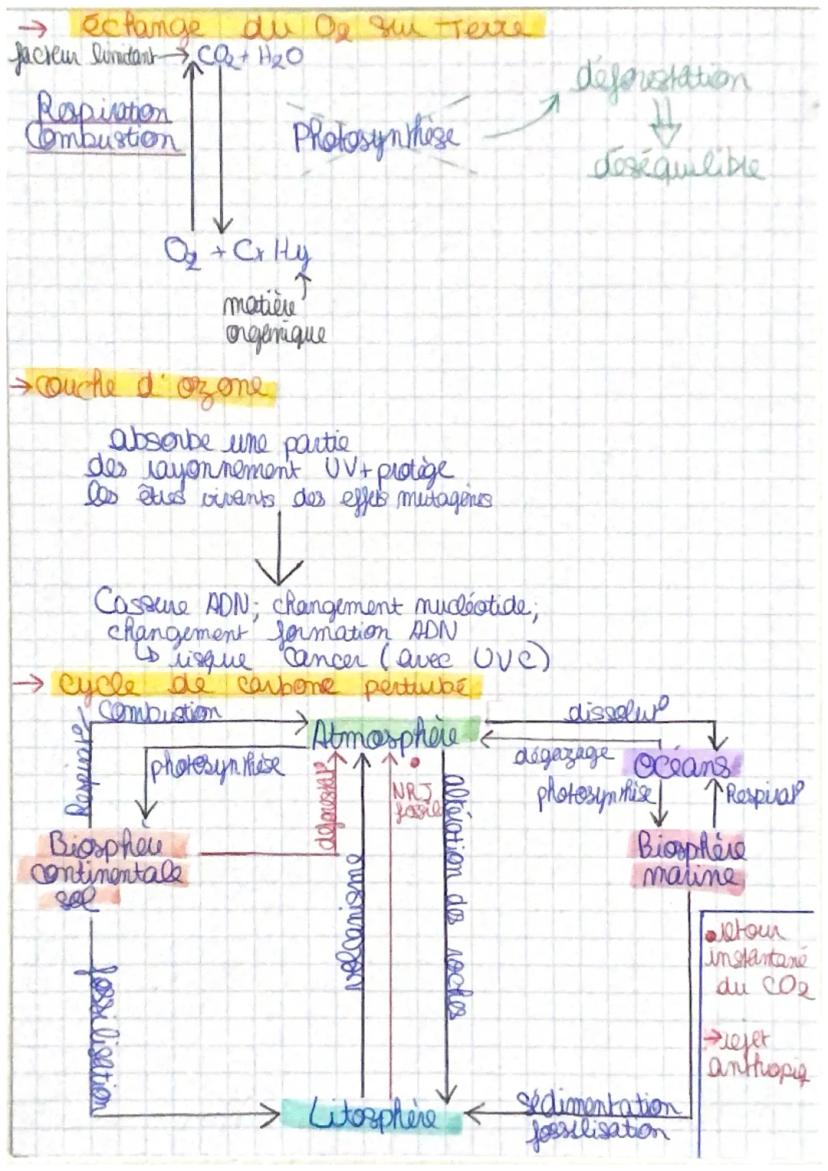 → échange du O2 sur Terre
facteur limitant → CO2 + H2O
Respiration
Combustion
Photosynthèse
déforestation
déséquilibre
O2 + Cx Hy
matière
organique
→ couche d'ozone
absorbe une partie
des rayonnement UV + protège
les êtres vivants des effets mutagènes
Cassure ADN; changement nucléotide;
changement formation ADN
↳ risque cancer (avec UVC)
→ cycle de carbone perturbé
Combustion
dissolut°
Respirat°
Atmosphère
photosynthèse
dégazage
Océans
déforestat°
NRJ
fossile
altération des roches
photosynthèse
Respirat°
Biosphère
continentale
sol
volcanisme
Biosphère
marine
fossilisation
• retour
instantané
du CO2
→ rejet
anthropiq
Litosphère
sédimentation
fossilisation